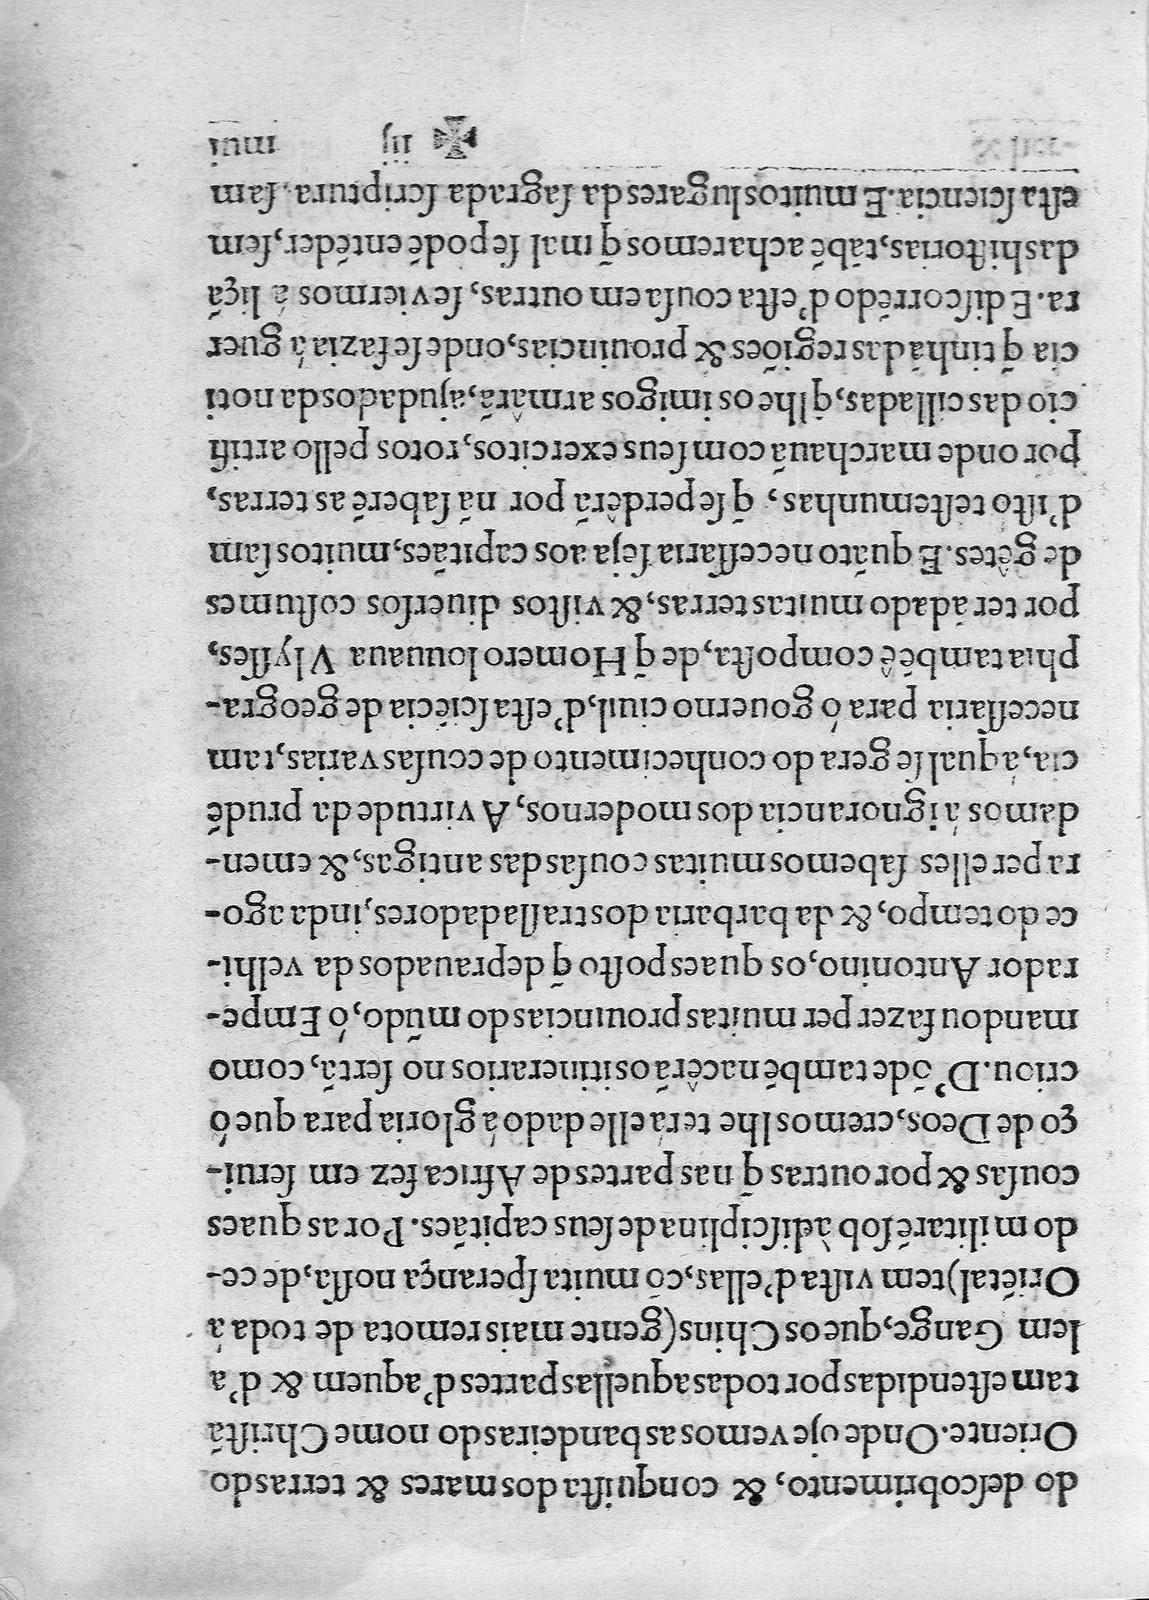 do deſcobrimento, & conquiſta dos mares & terras do
Oriente. Onde oje vemos as bandeiras do nome Chriſtã
tam eſtendidas por todas aquellas partes d'aquem & d'a
lem Gange, que os Chins (gente mais remota de toda á
Oriẽtal) tem viſta d'ellas, cõ muita ſperança noſſa, de ce-
do militarẽ ſob à diſciplina de ſeus capitães. Por as quaes
couſas & por outras q̃ nas partes de Africa fez em ſerui-
ço de Deos, cremos lhe terá elle dado á gloria para que ó
criou. D'õde tambẽ nacêrão os itinerarios no ſertã, como
mandou fazer per muitas prouincias do mũdo, ó Empe-
rador Antonino, os quaes poſto q̃ deprauados da velhi-
ce do tempo, & da barbaria dos tralladadores, inda ago-
ra per elles ſabemos muitas couſas das antigas, & emen-
damos á ignorancia dos modernos, A virtude da prudẽ
cia, á qual ſe gera do conhecimento de couſas varias, tam
neceſſaria para ó gouerno ciuil, d'eſta ſciẽcia de geogra-
phia tambẽ é compoſta, de q̃ Homero louuaua Vlyſſes,
por ter ãdado muitas terras, & viſtos diuerſos coſtumes
de gẽtes. E quãto neceſſaria ſeja aos capitães, muitos ſam
d'iſto teſtemunhas, q̃ ſe perdêrã por nã ſaberẽ as terras,
por onde marchauã com ſeus exercitos, rotos pello artifi
cio das cilladas, q̃ lhe os imigos armârã, ajudados da noti
cia q̃ tinhã das regiões & prouincias, onde ſe fazia á guer
ra. E diſcorrẽdo d'eſta couſa em outras, ſe viermos á liçã
das hiſtorias, tãbẽ acharemos q̃ mal ſe podẽ entẽder, ſem
eſta ſciencia. E muitos lugares da ſagrada ſcriptura. ſam
✠ iij mui